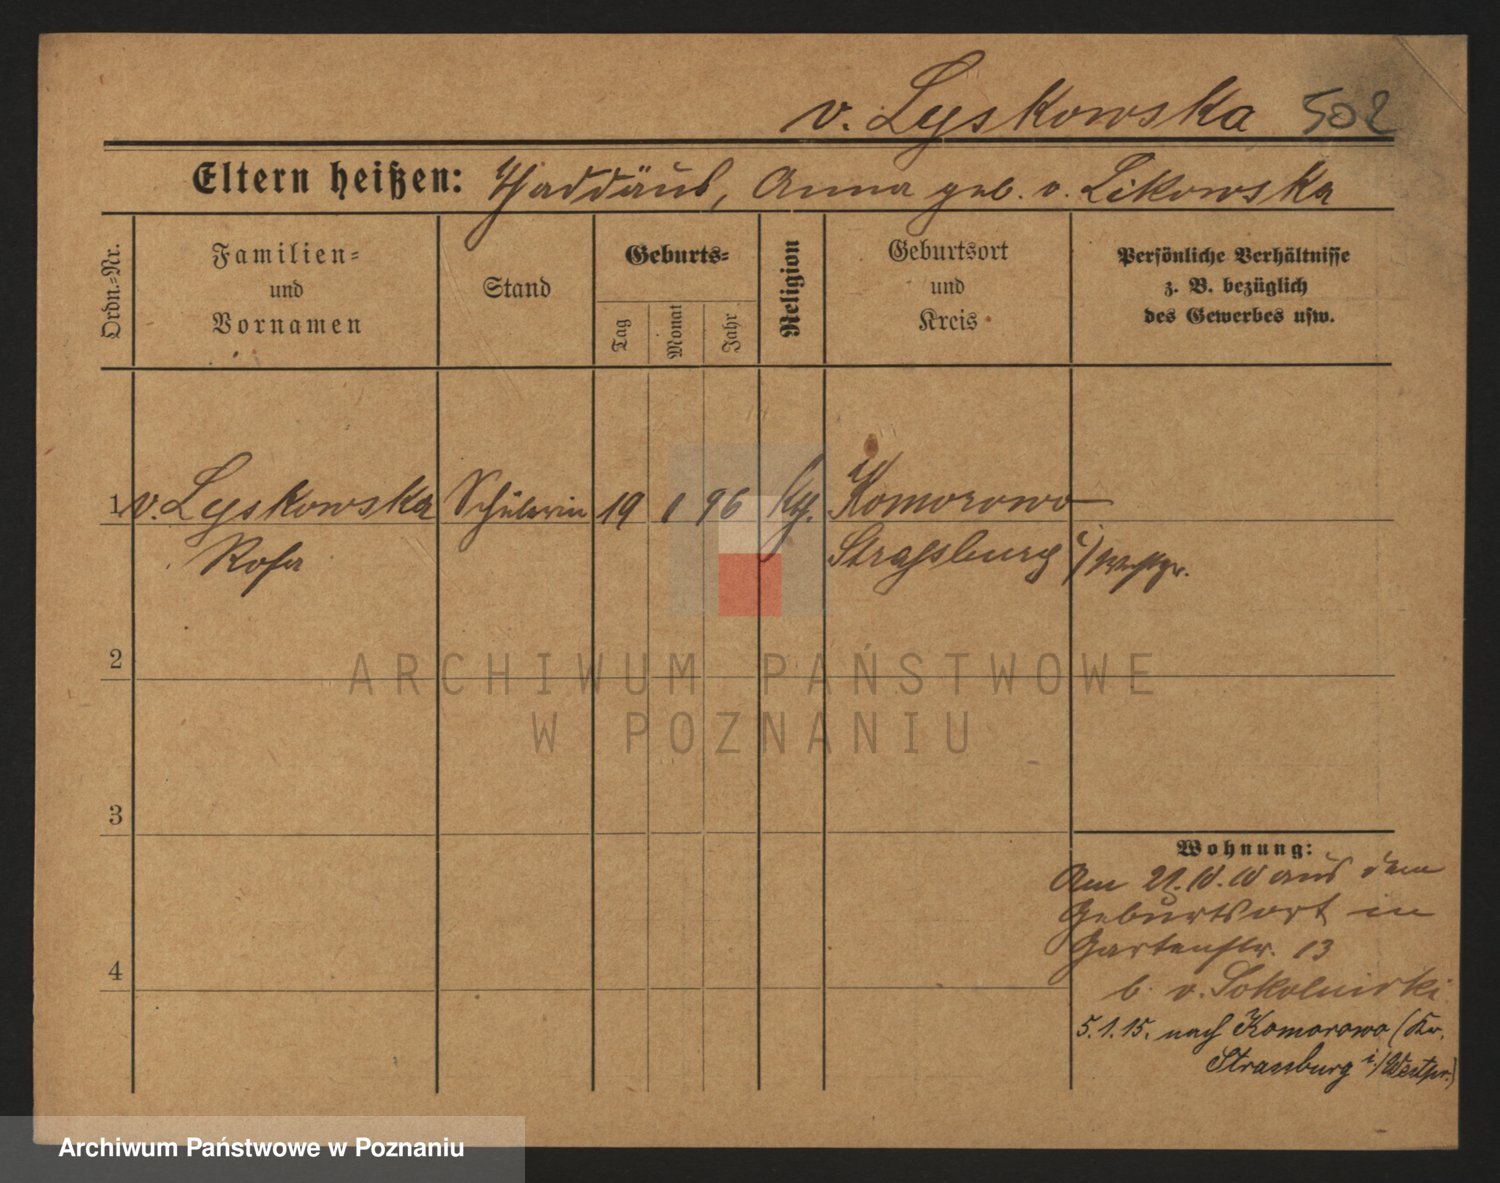 v. Lyskowska 502
Eltern heißen: Thaddäus, Anna geb. v. Likowska
Ordn.-Nr.
Familien-
und
Vornamen
Stand
Geburts-
Tag
Monat
Jahr
Religion
Geburtsort
und
Kreis
Persönliche Verhältnisse
z. B. bezüglich
des Gewerbes usw.
1 v. Lyskowska Schülerin 19 1 96 kth. Komorowo
Rosa Strassburg i/Westpr.
2
3
4
Wohnung:
Am 21. 10. 10 aus dem
Geburtsort in
Gartenstr. 13
b. v. Sokolnicki
5.1.15. nach Komorowo (Kr.
Strassburg i/Westpr.)
ARCHIWUM PAŃSTWOWE
W POZNANIU
Archiwum Państwowe w Poznaniu